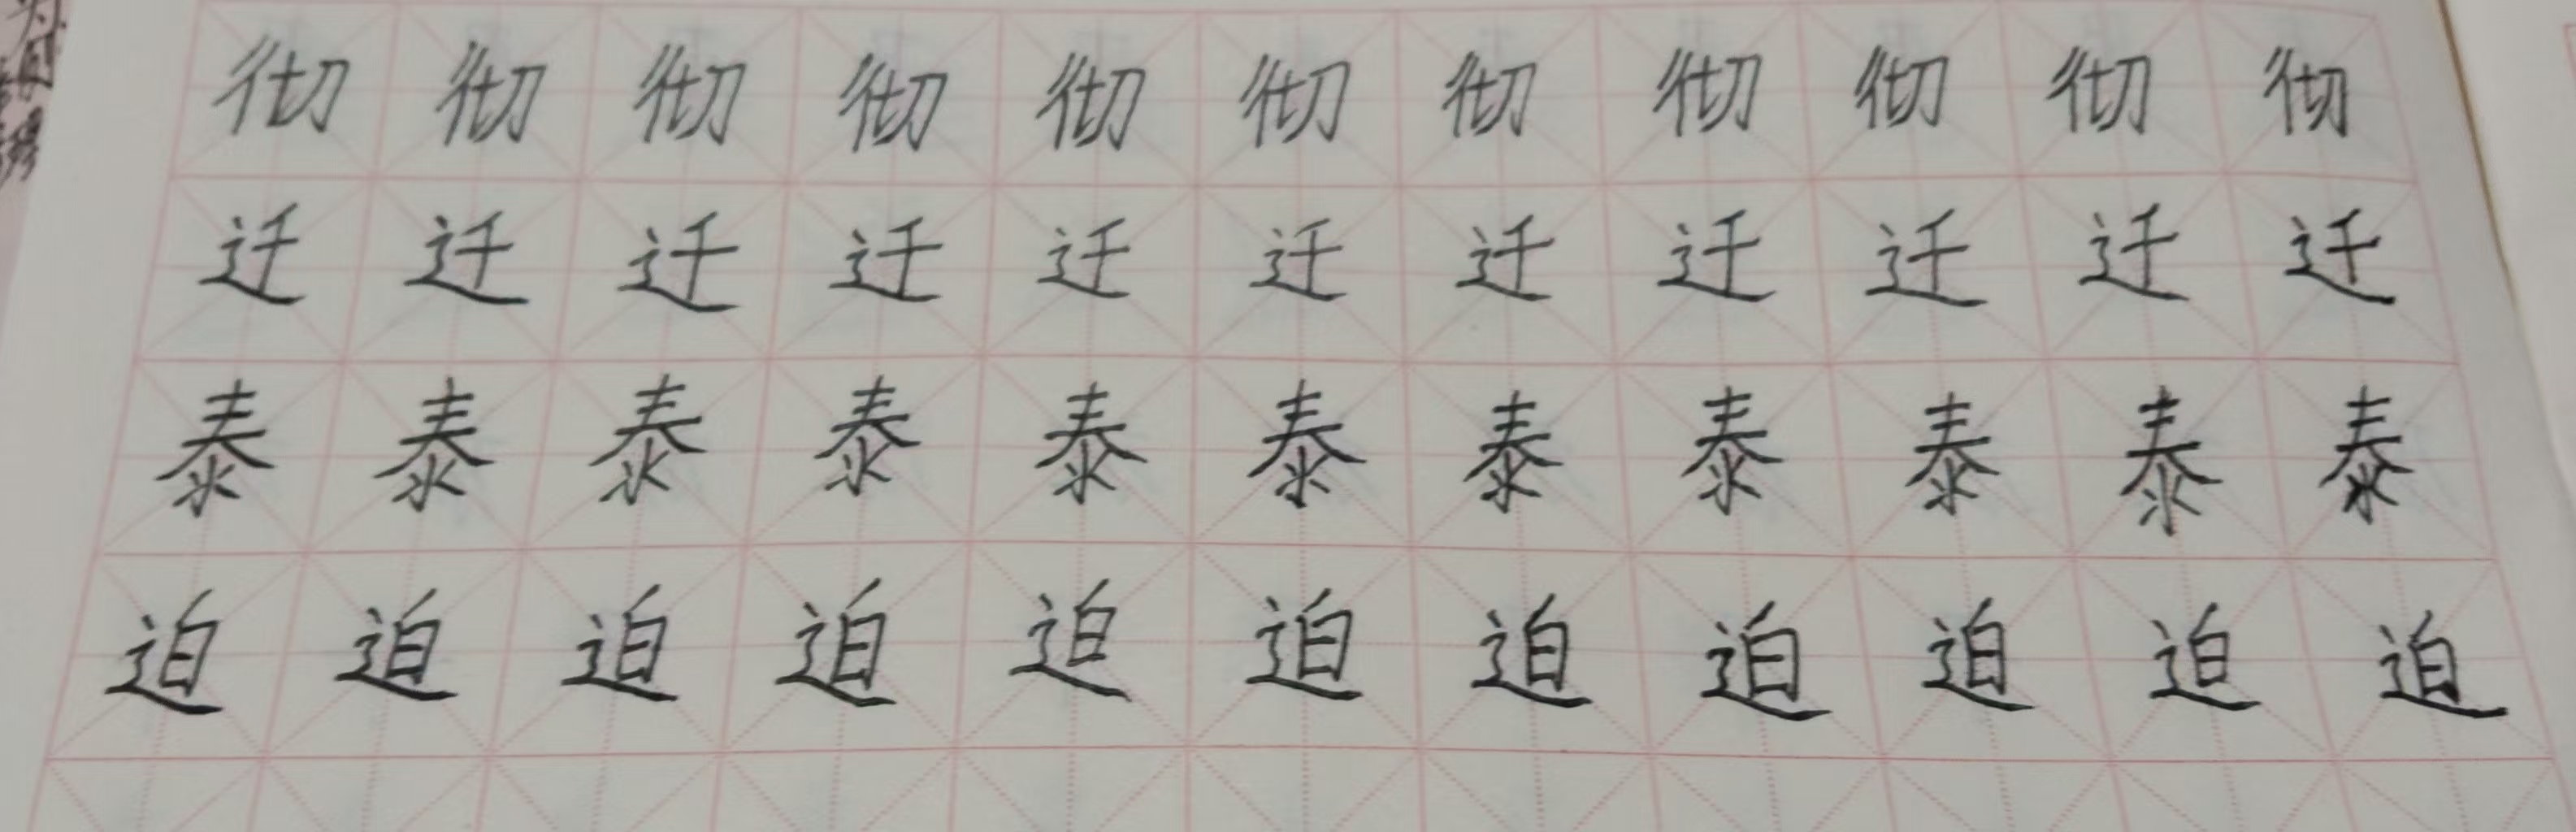 彻彻彻彻彻彻彻彻彻彻彻
迁迁迁迁迁迁迁迁迁迁迁
泰泰泰泰泰泰泰泰泰泰泰
迫迫迫迫迫迫迫迫迫迫迫